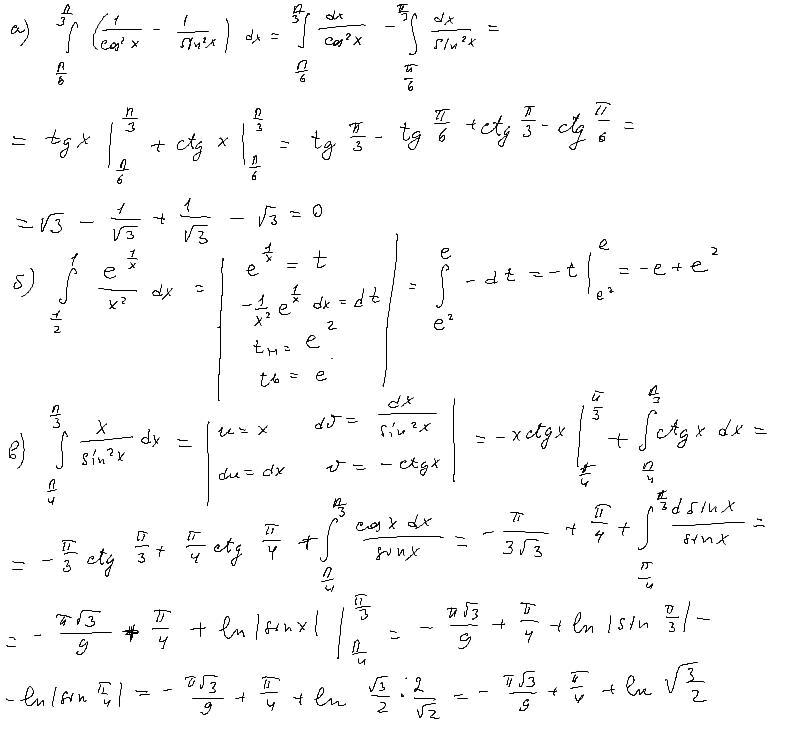 а) ∫_{π/6}^{π/3} (1/cos²x − 1/sin²x) dx = ∫_{π/6}^{π/3} dx/cos²x − ∫_{π/6}^{π/3} dx/sin²x =
= tg x |_{π/6}^{π/3} + ctg x |_{π/6}^{π/3} = tg π/3 − tg π/6 + ctg π/3 − ctg π/6 =
= √3 − 1/√3 + 1/√3 − √3 = 0
б) ∫_{1/2}^{1} e^{1/x}/x² dx = | e^{1/x} = t; −1/x² e^{1/x} dx = dt; tн = e²; tв = e | = ∫_{e²}^{e} − dt = −t |_{e²}^{e} = −e + e²
в) ∫_{π/4}^{π/3} x/sin²x dx = | u = x dv = dx/sin²x; du = dx v = −ctgx | = −x ctgx |_{π/4}^{π/3} + ∫_{π/4}^{π/3} ctg x dx =
= − π/3 ctg π/3 + π/4 ctg π/4 + ∫_{π/4}^{π/3} cos x dx/sinx = − π/3√3 + π/4 + ∫_{π/4}^{π/3} d sinx/sinx =
= − π√3/9 + π/4 + ln |sinx| |_{π/4}^{π/3} = − π√3/9 + π/4 + ln |sin π/3| −
− ln |sin π/4| = − π√3/9 + π/4 + ln √3/2 · 2/√2 = − π√3/9 + π/4 + ln √(3/2)